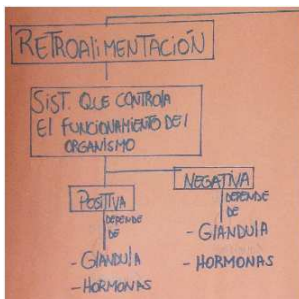 RETROAlIMENTACIÓN
SIST. QUE CONTROlA
El FUNCIONAMIENTO DEl
ORGANISMO
POSITIVA
DEPENDE
DE
- GlANDUlA
- HORMONAS
NEGATIVA
DEPENDE
DE
- GlANDUlA
- HORMONAS